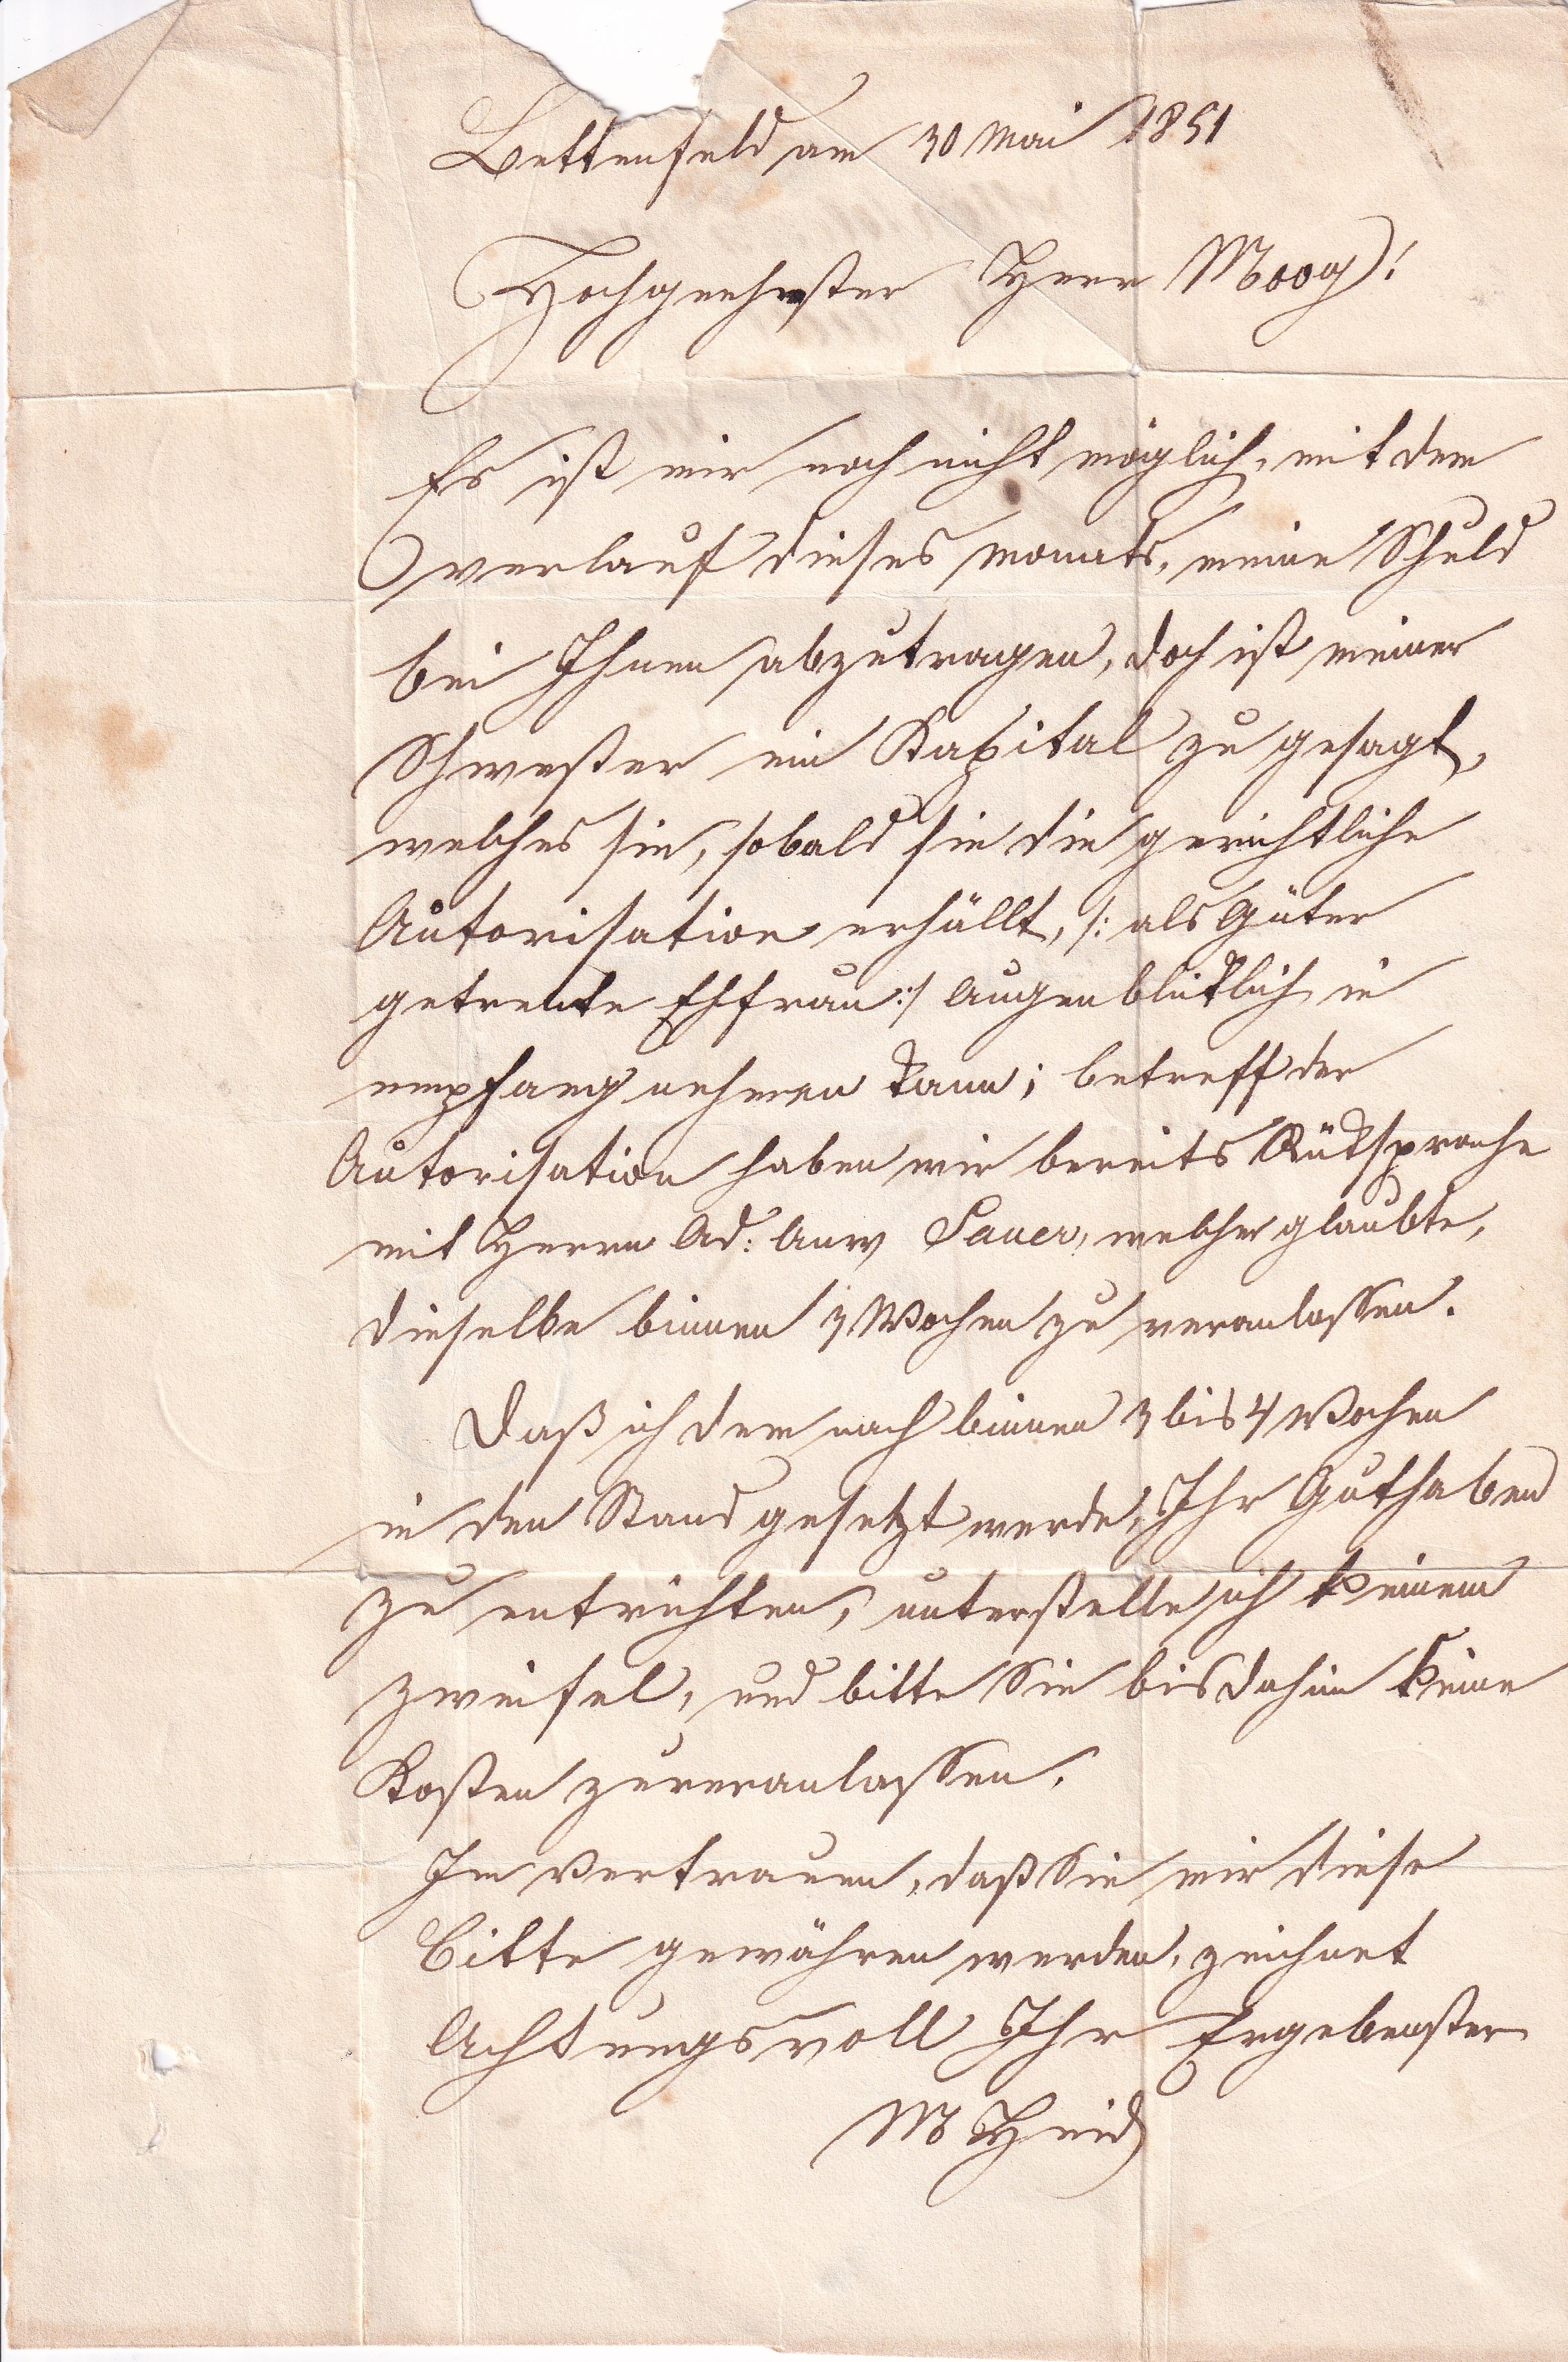 Bettenfeld am 30 Mai 1851
Hochgeehrster Herr Moog!
Es ist mir noch nicht möglich, mit dem
verlauf dieses Monats, meine Schuld
bei Ihnen abzutragen, doch ist meiner
Schwester ein Kapital zu gesagt,
welches sie, sobald sie die gerichtliche
Autorisation erhällt, /: als Güter
getrente Ehfrau :/ Augenbliklich in
empfang nehmen kann; betreff der
Autorisation haben wir bereits Rüksprache
mit Herrn Ad: Anw Sauer, welcher glaubte,
dieselbe binnen 3 Wochen zu veranlassen.
Daß ich dem nach binnen 3 bis 4 Wochen
in den Stand gesetzt werde, Ihr Guthaben
zu entrichten, unterstelle ich keinem
zweifel, und bitte Sie bis dahin keine
Kosten zuveranlassen.
Im Vertrauen, daß Sie mir diese
Bitte gewähren werden, zeichnet
Achtungsvoll Ihr Ergebenster
M Heid